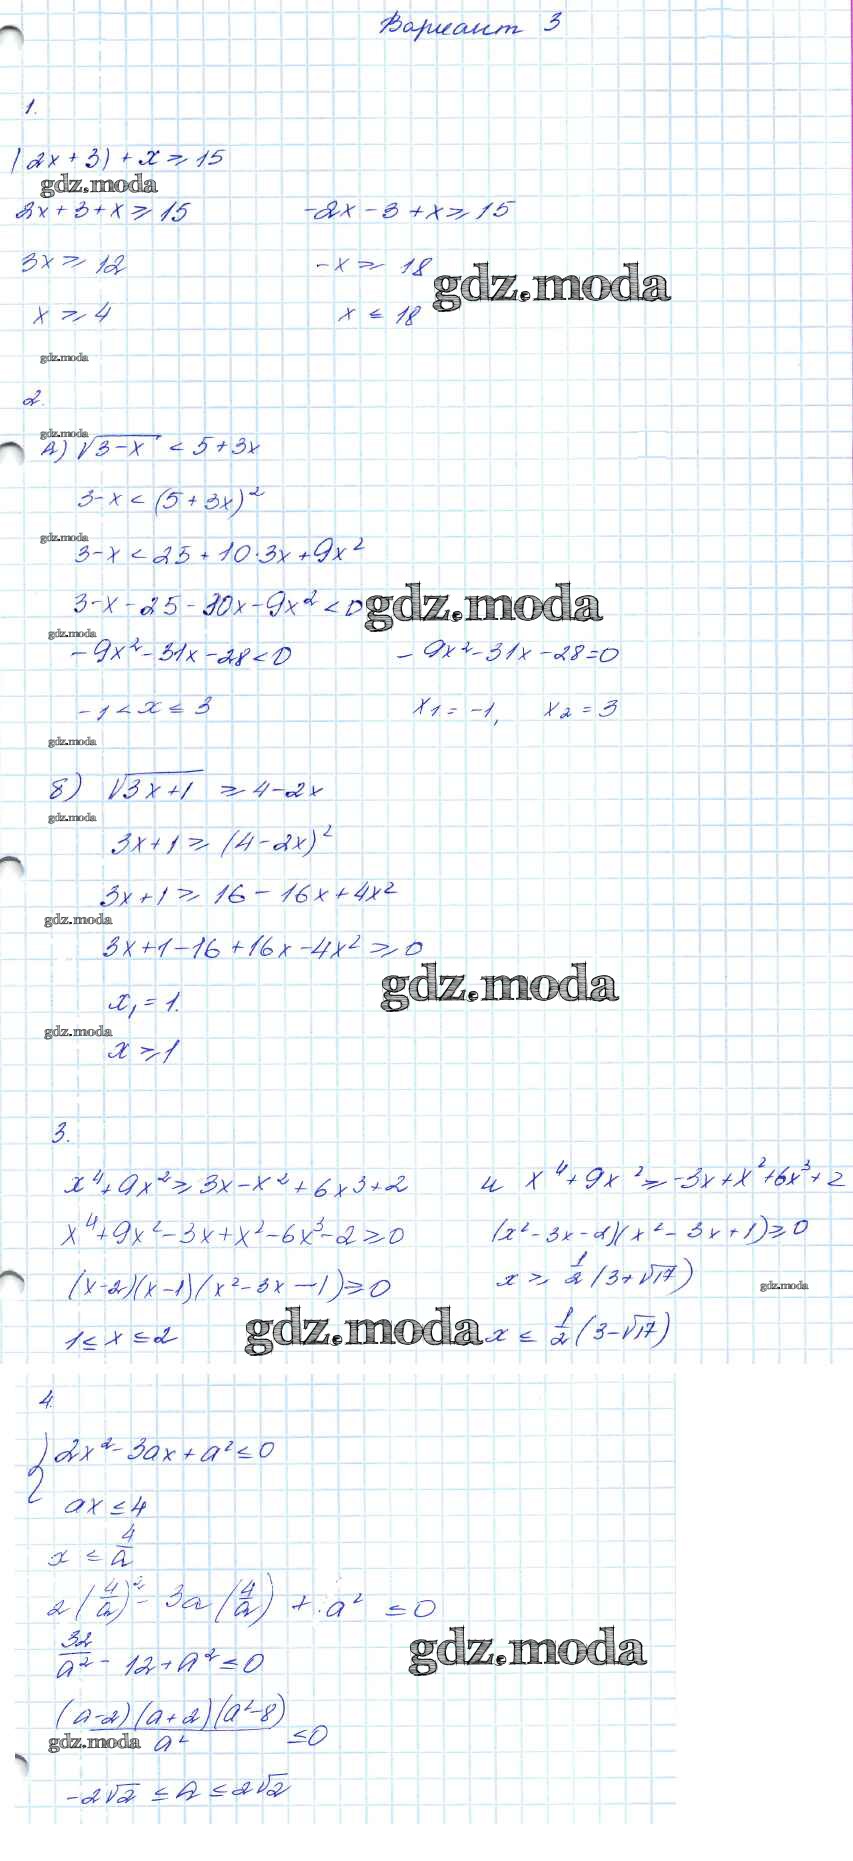 Вариант 3
1.
|2x+3|+x≥15
gdz.moda
2x+3+x≥15    -2x-3+x≥15
3x≥12    -x≥18
gdz.moda
x≥4    x≤18
gdz.moda
2.
gdz.moda
А) √3-x < 5+3x
3-x<(5+3x)²
gdz.moda
3-x<25+10·3x+9x²
3-x-25-30x-9x²<0
gdz.moda
gdz.moda
-9x²-31x-28<0    -9x²-31x-28=0
-1<x≤3    x₁=-1,    x₂=3
gdz.moda
б) √3x+1 ≥4-2x
gdz.moda
3x+1≥(4-2x)²
3x+1≥16-16x+4x²
gdz.moda
3x+1-16+16x-4x²≥0
gdz.moda
x₁=1.
gdz.moda
x≥1
3.
x⁴+9x²≥3x-x²+6x³+2    и    x⁴+9x²≥-3x+x²+6x³+2
x⁴+9x²-3x+x²-6x³-2≥0    (x²-3x-2)(x²-3x+1)≥0
(x-2)(x-1)(x²-3x-1)≥0    x≥1/2(3+√17)
gdz.moda
gdz.moda
1≤x≤2    x≤1/2(3-√17)
4.
{2x²-3ax+a²≤0
ax≤4
x≤4/a
2(4/a)²-3a(4/a)+a²≤0
gdz.moda
32/a²-12+a²≤0
(a-2)(a+2)(a²-8)/a²≤0
gdz.moda
-2√2≤a≤2√2